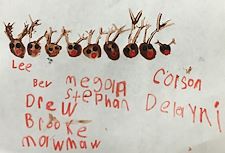 Lee
Bev
Drew
Brooke
mawmaw
megan
stephan
Corson
Delayni